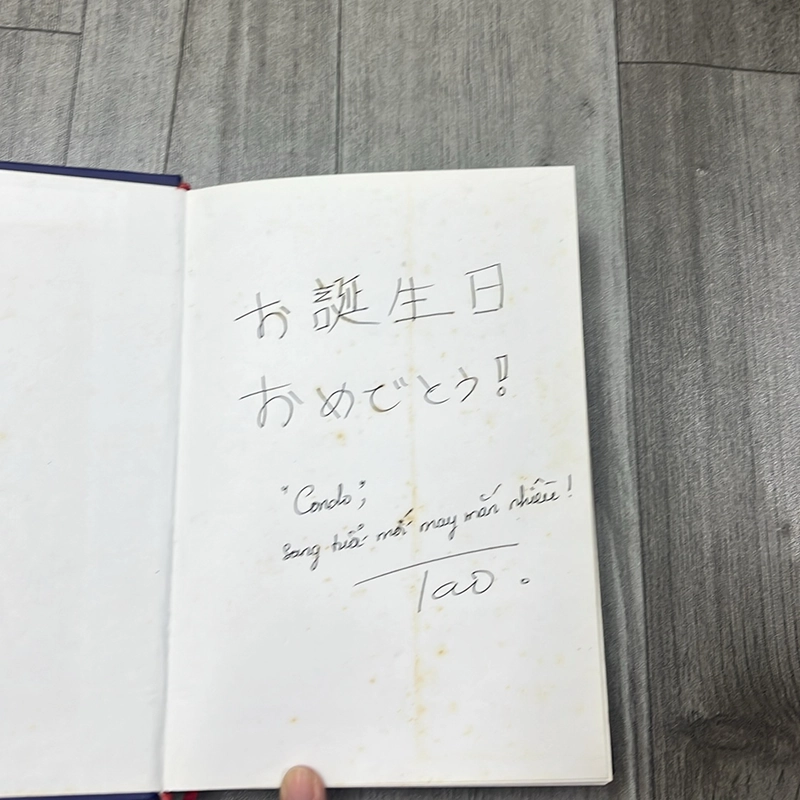 お誕生日
おめでとう!
"Condo",
Sang tuổi mới may mắn nhiều!
Tao.